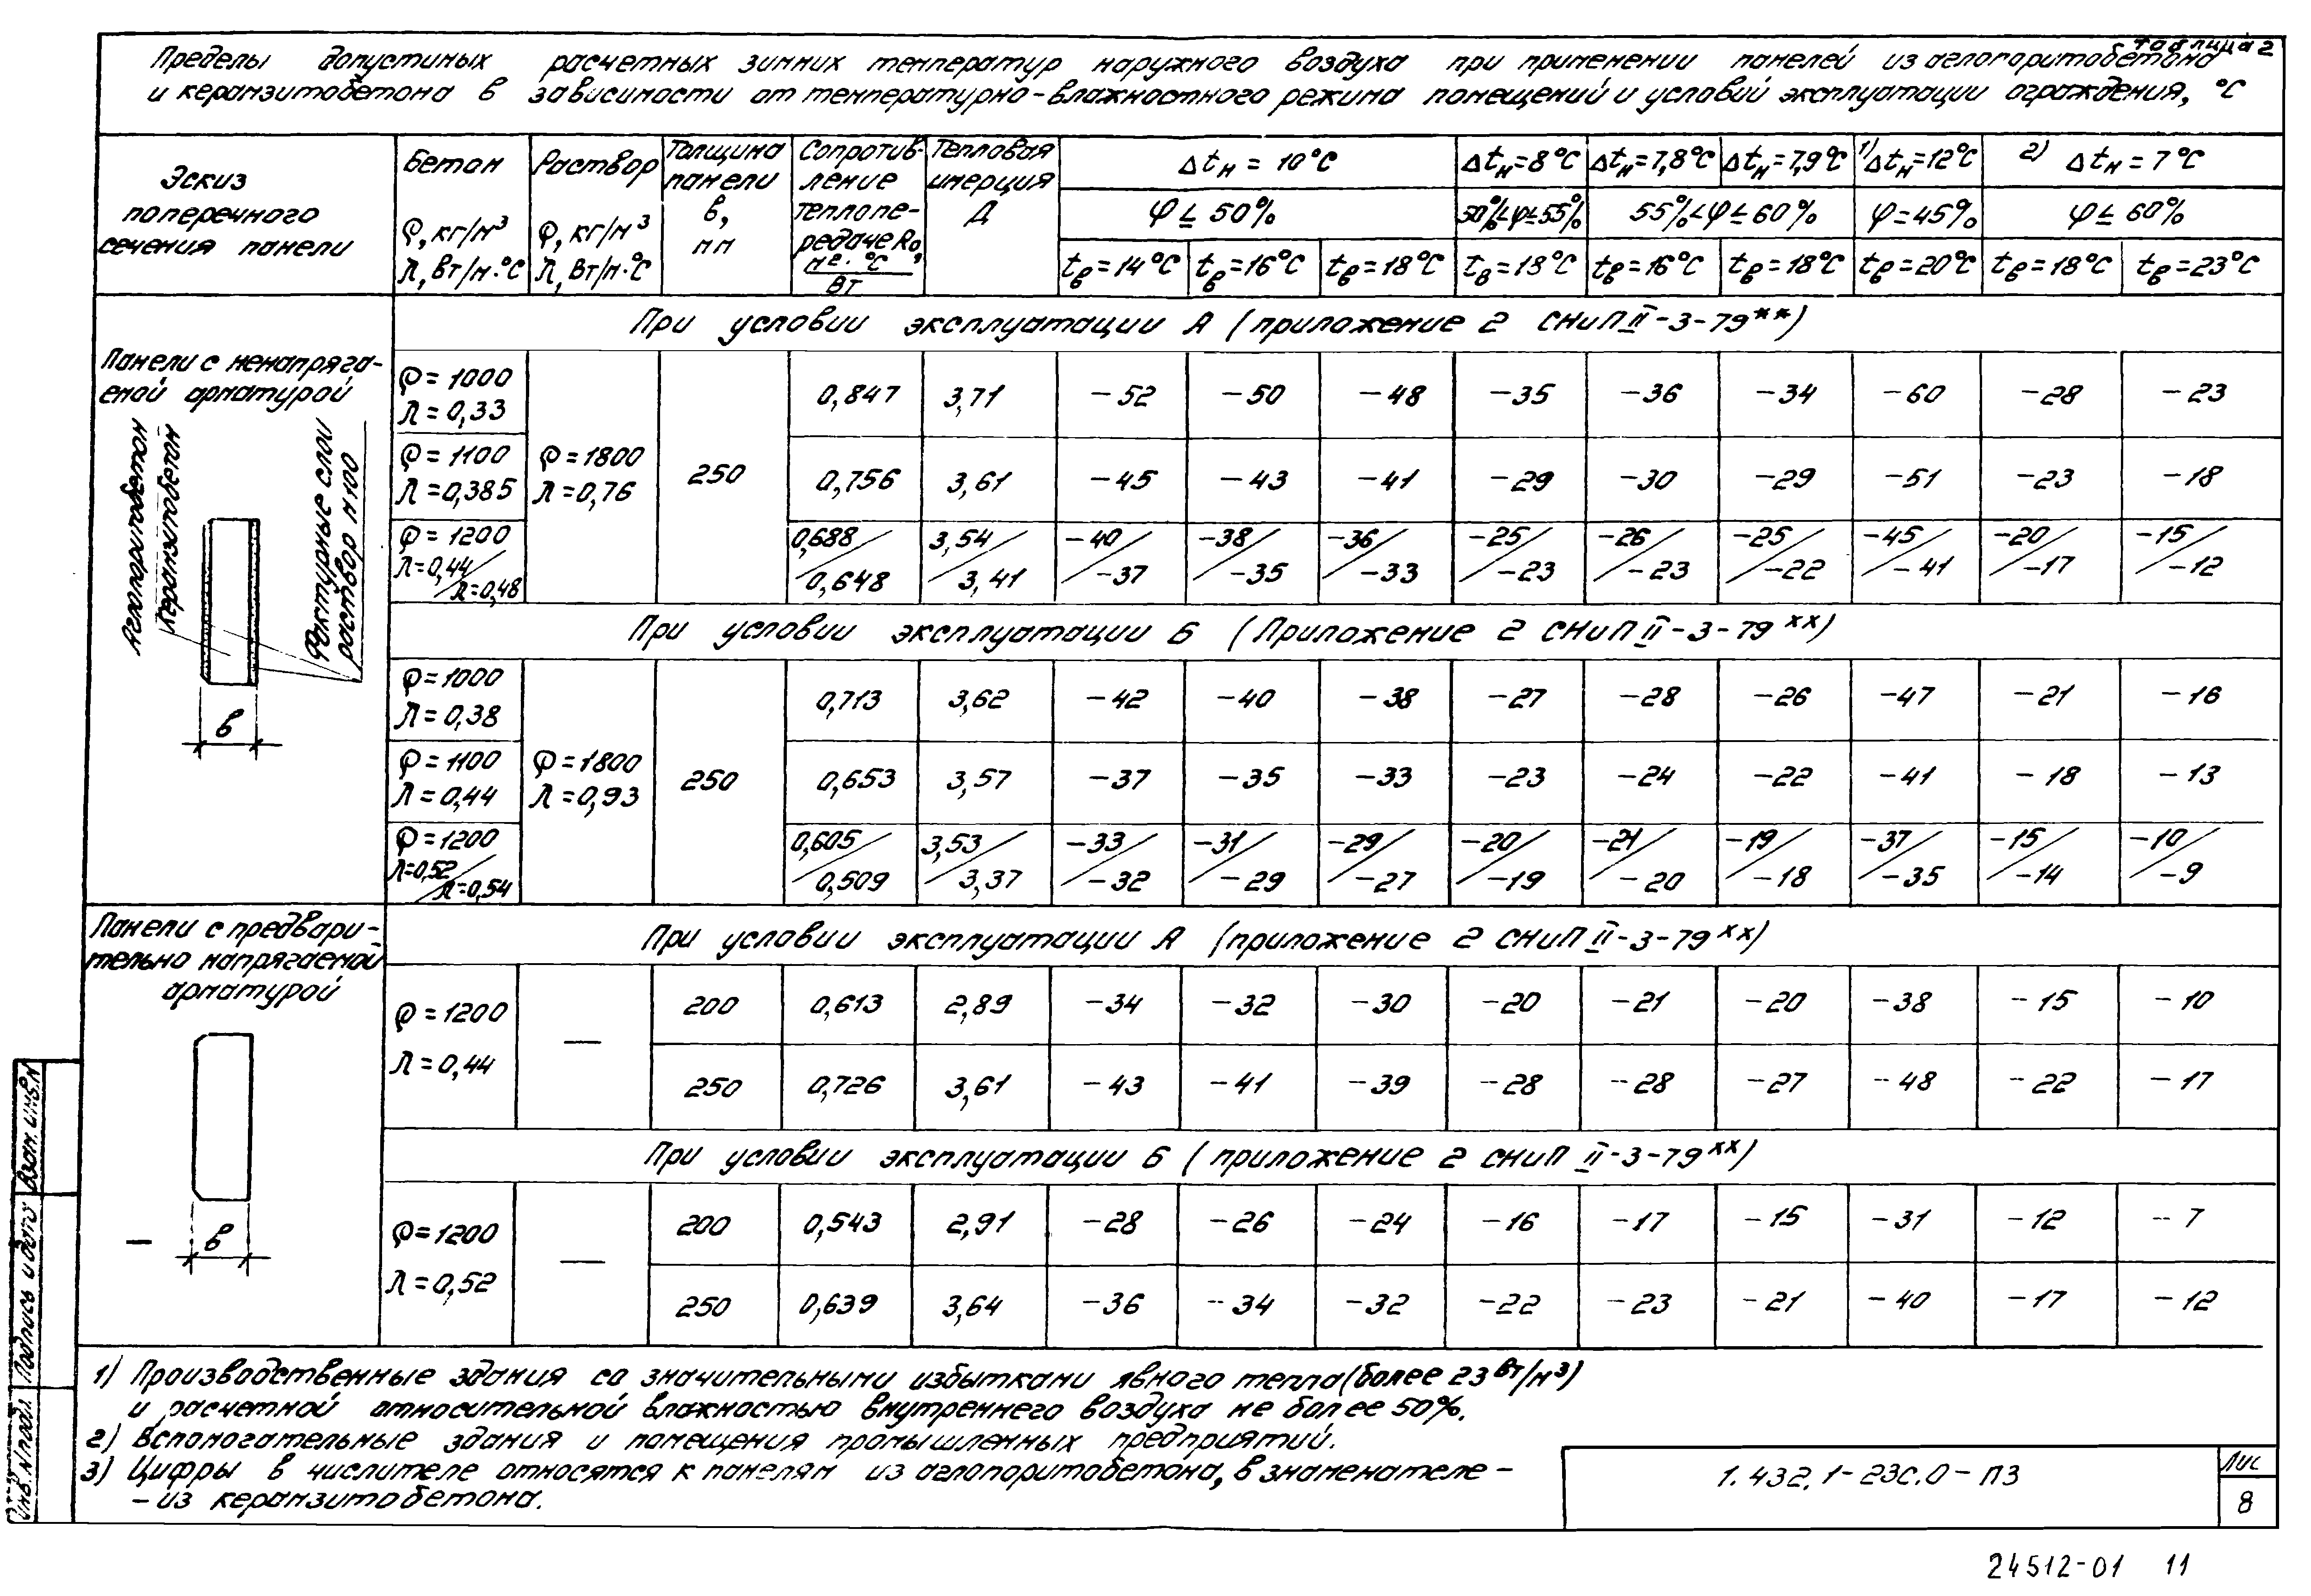 Таблица 2
Пределы допустимых расчетных зимних температур наружного воздуха при применении панелей из аглопоритобетона
и керамзитобетона в зависимости от температурно-влажностного режима помещений и условий эксплуатации ограждения, °С
Эскиз поперечного сечения панели | Бетон ρ, кг/м³ λ, Вт/м·°С | Раствор ρ, кг/м³ λ, Вт/м·°С | Толщина панели в, мм | Сопротивление теплопередаче R₀, м²·°С/Вт | Тепловая инерция Д
Δtн = 10°С | Δtн=8°С | Δtн=7,8°С | Δtн=7,9°С | 1) Δtн=12°С | 2) Δtн = 7°С
φ ≤ 50% | 50%<φ≤55% | 55%<φ≤60% | φ=45% | φ≤ 60%
tв=14°С | tв=16°С | tв=18°С | tв=18°С | tв=16°С | tв=18°С | tв=20°С | tв=18°С | tв=23°С
При условии эксплуатации А (приложение 2 СНиП II-3-79**)
Панели с ненапряга-
емой арматурой
Аглопоритобетон
Керамзитобетон
Фактурные слои
раствор М100
в
ρ=1000 λ=0,33 | 0,847 | 3,71 | -52 | -50 | -48 | -35 | -36 | -34 | -60 | -28 | -23
ρ=1100 λ=0,385 | ρ=1800 λ=0,76 | 250 | 0,756 | 3,61 | -45 | -43 | -41 | -29 | -30 | -29 | -51 | -23 | -18
ρ=1200 λ=0,44/λ=0,48 | 0,688/0,648 | 3,54/3,41 | -40/-37 | -38/-35 | -36/-33 | -25/-23 | -26/-23 | -25/-22 | -45/-41 | -20/-17 | -15/-12
При условии эксплуатации Б (Приложение 2 СНиП II-3-79xx)
ρ=1000 λ=0,38 | 0,713 | 3,62 | -42 | -40 | -38 | -27 | -28 | -26 | -47 | -21 | -16
ρ=1100 λ=0,44 | ρ=1800 λ=0,93 | 250 | 0,653 | 3,57 | -37 | -35 | -33 | -23 | -24 | -22 | -41 | -18 | -13
ρ=1200 λ=0,52/λ=0,54 | 0,605/0,509 | 3,53/3,37 | -33/-32 | -31/-29 | -29/-27 | -20/-19 | -21/-20 | -19/-18 | -37/-35 | -15/-14 | -10/-9
Панели с предвари-
тельно напрягаемой
арматурой
в
При условии эксплуатации А (приложение 2 СНиП II-3-79xx)
ρ=1200 λ=0,44 | — | 200 | 0,613 | 2,89 | -34 | -32 | -30 | -20 | -21 | -20 | -38 | -15 | -10
250 | 0,726 | 3,61 | -43 | -41 | -39 | -28 | -28 | -27 | -48 | -22 | -17
При условии эксплуатации Б (приложение 2 СНиП II-3-79xx)
ρ=1200 λ=0,52 | — | 200 | 0,543 | 2,91 | -28 | -26 | -24 | -16 | -17 | -15 | -31 | -12 | -7
250 | 0,639 | 3,64 | -36 | -34 | -32 | -22 | -23 | -21 | -40 | -17 | -12
1) Производственные здания со значительными избытками явного тепла (более 23 Вт/м³)
и расчетной относительной влажностью внутреннего воздуха не более 50%.
2) Вспомогательные здания и помещения промышленных предприятий.
3) Цифры в числителе относятся к панелям из аглопоритобетона, в знаменателе -
- из керамзитобетона.
1.432.1-23С.0-ПЗ
Лис
8
Инв. N подл
Подпись и дата
Взам. инв. N
24512-01 11